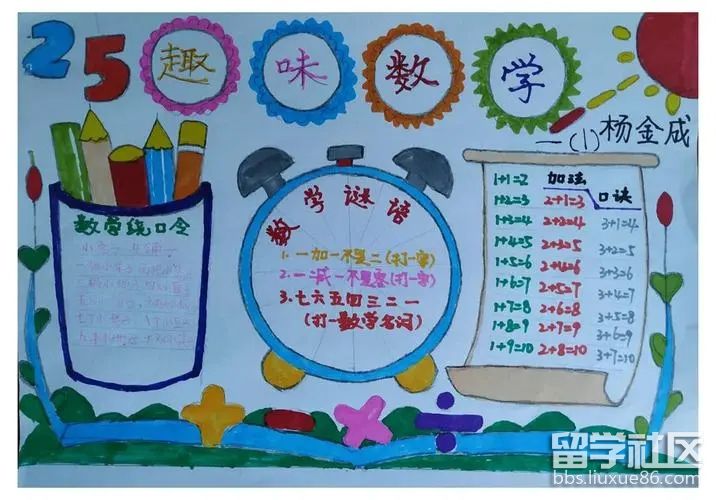 25
趣味数学
一(1)杨金成
数学绕口令
数学谜语
1.一加一不是二(打一字)
2.一减一不是零(打一字)
3.七六五四三二一
(打一数学名词)
加法
口诀
1+1=2
1+2=3
1+3=4
1+4=5
1+5=6
1+6=7
1+7=8
1+8=9
1+9=10
2+1=3
2+2=4
2+3=5
2+4=6
2+5=7
2+6=8
2+7=9
2+8=10
3+1=4
3+2=5
3+3=6
3+4=7
3+5=8
3+6=9
3+7=10
留学社区
bbs.liuxue86.com